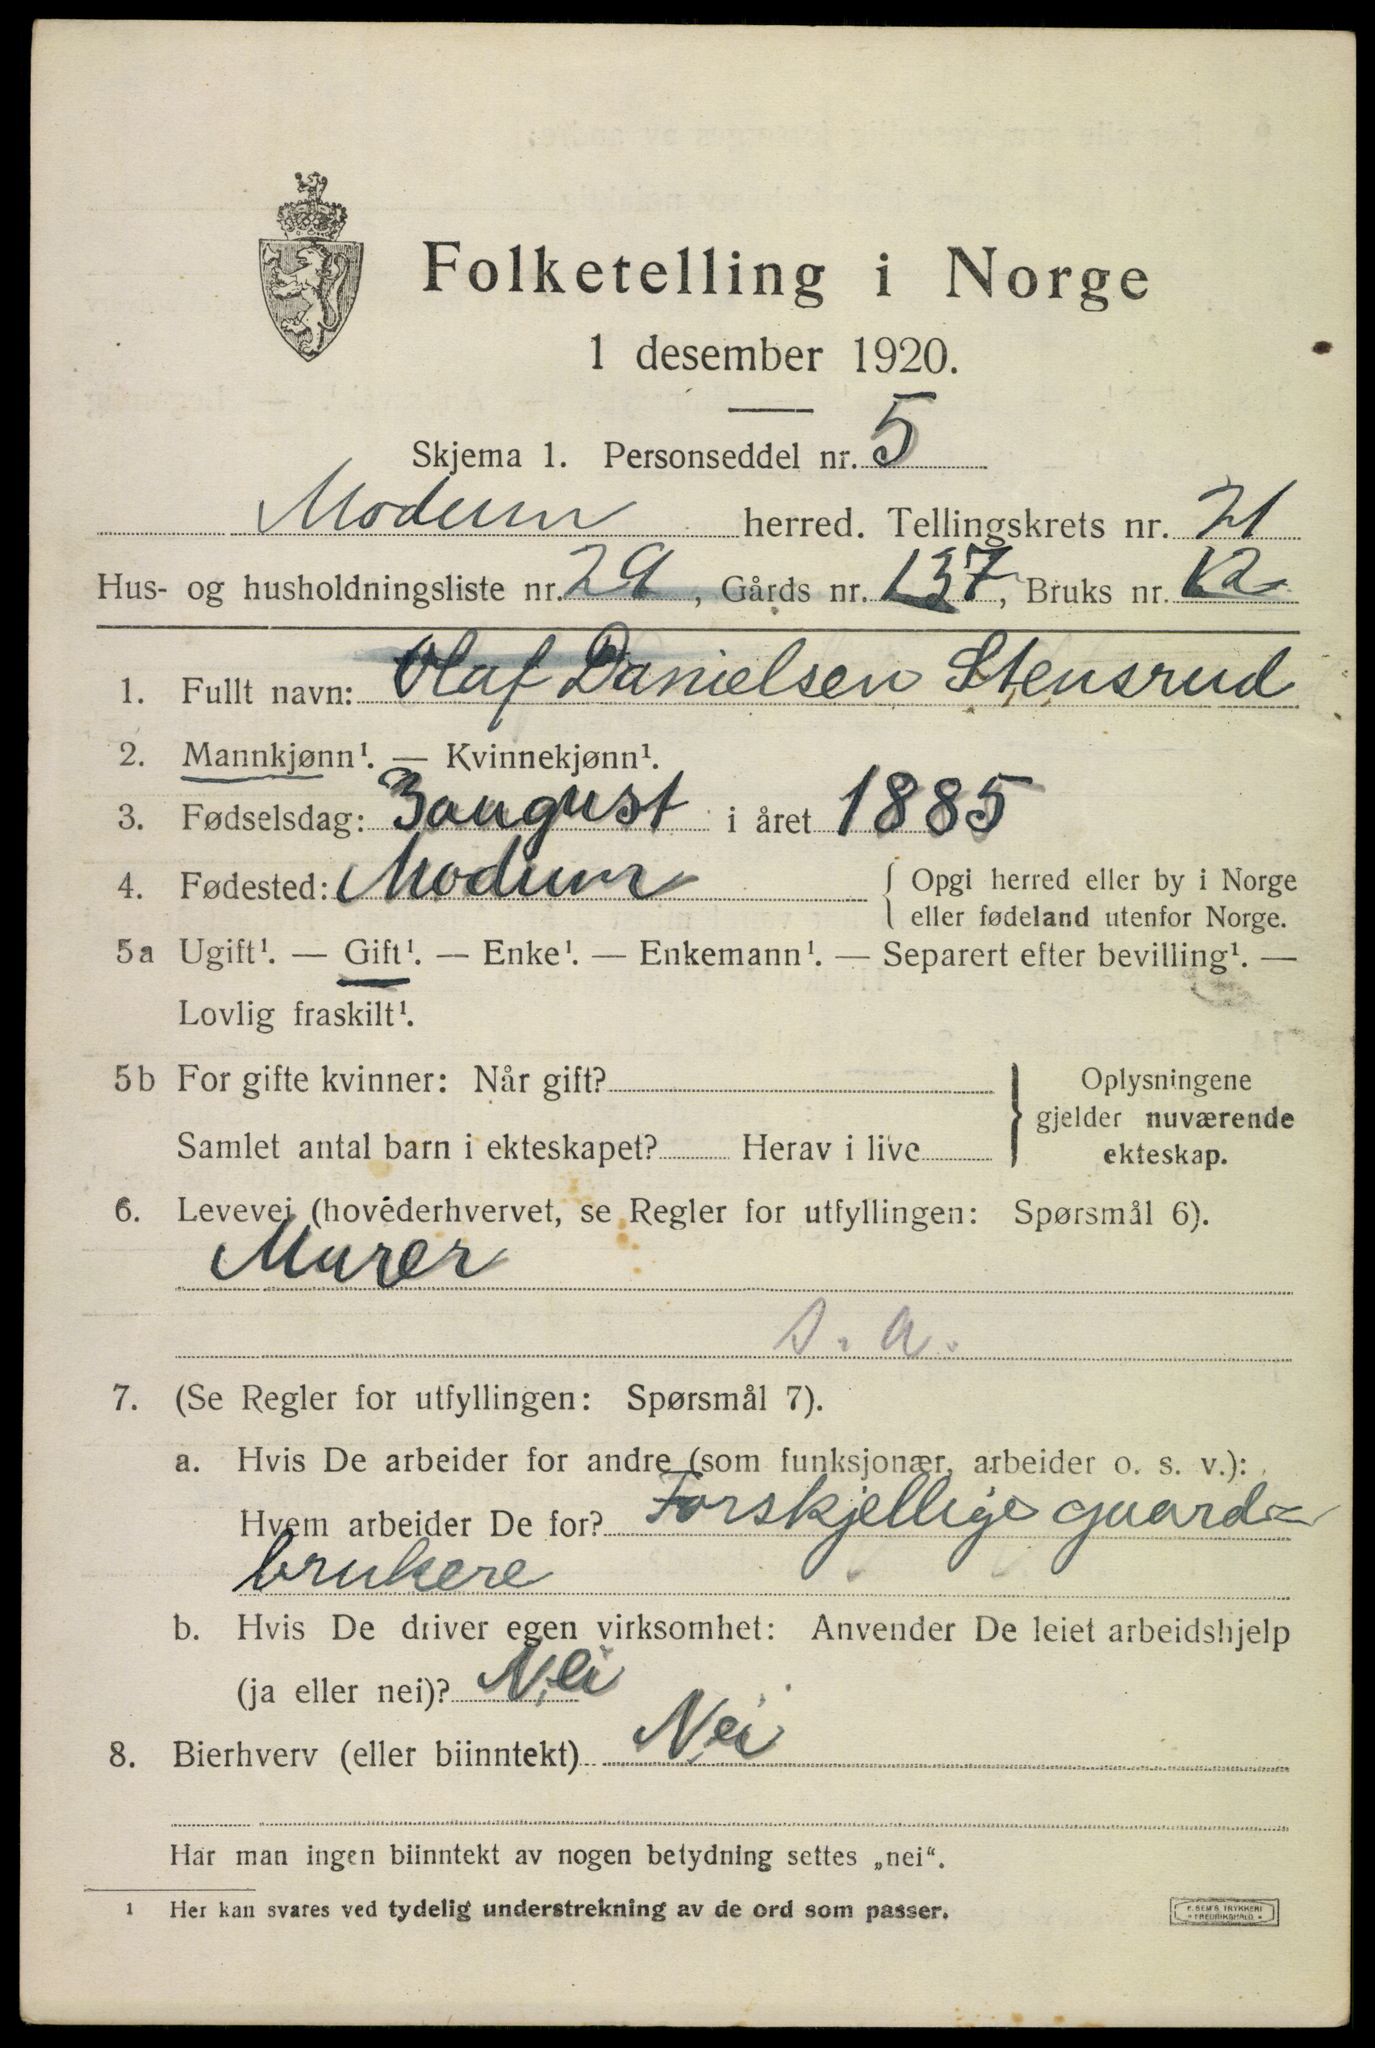 Folketelling i Norge
1 desember 1920.
Skjema 1. Personseddel nr. 5
Modum herred. Tellingskrets nr. 21
Hus- og husholdningsliste nr. 29, Gårds nr. 137, Bruks nr. 12
1. Fullt navn: Olaf Danielsen Stensrud
2. Mannkjønn¹. — Kvinnekjønn¹.
3. Fødselsdag: 3 august i året 1885
4. Fødested: Modum { Opgi herred eller by i Norge
eller fødeland utenfor Norge.
5a Ugift¹. — Gift¹. — Enke¹. — Enkemann¹. — Separert efter bevilling¹. —
Lovlig fraskilt¹.
5b For gifte kvinner: Når gift? } Oplysningene
gjelder nuværende
Samlet antal barn i ekteskapet? Herav i live ekteskap.
6. Levevei (hovederhvervet, se Regler for utfyllingen: Spørsmål 6).
Murer
s. a.
7. (Se Regler for utfyllingen: Spørsmål 7).
a. Hvis De arbeider for andre (som funksjonær, arbeider o. s. v.):
Hvem arbeider De for? Forskjellige gaard=
brukere
b. Hvis De driver egen virksomhet: Anvender De leiet arbeidshjelp
(ja eller nei)? Nei
8. Bierhverv (eller biinntekt) Nei
Har man ingen biinntekt av nogen betydning settes „nei“.
1 Her kan svares ved tydelig understrekning av de ord som passer.
E. SEM'S TRYKKERI
* FREDRIKSHALD *